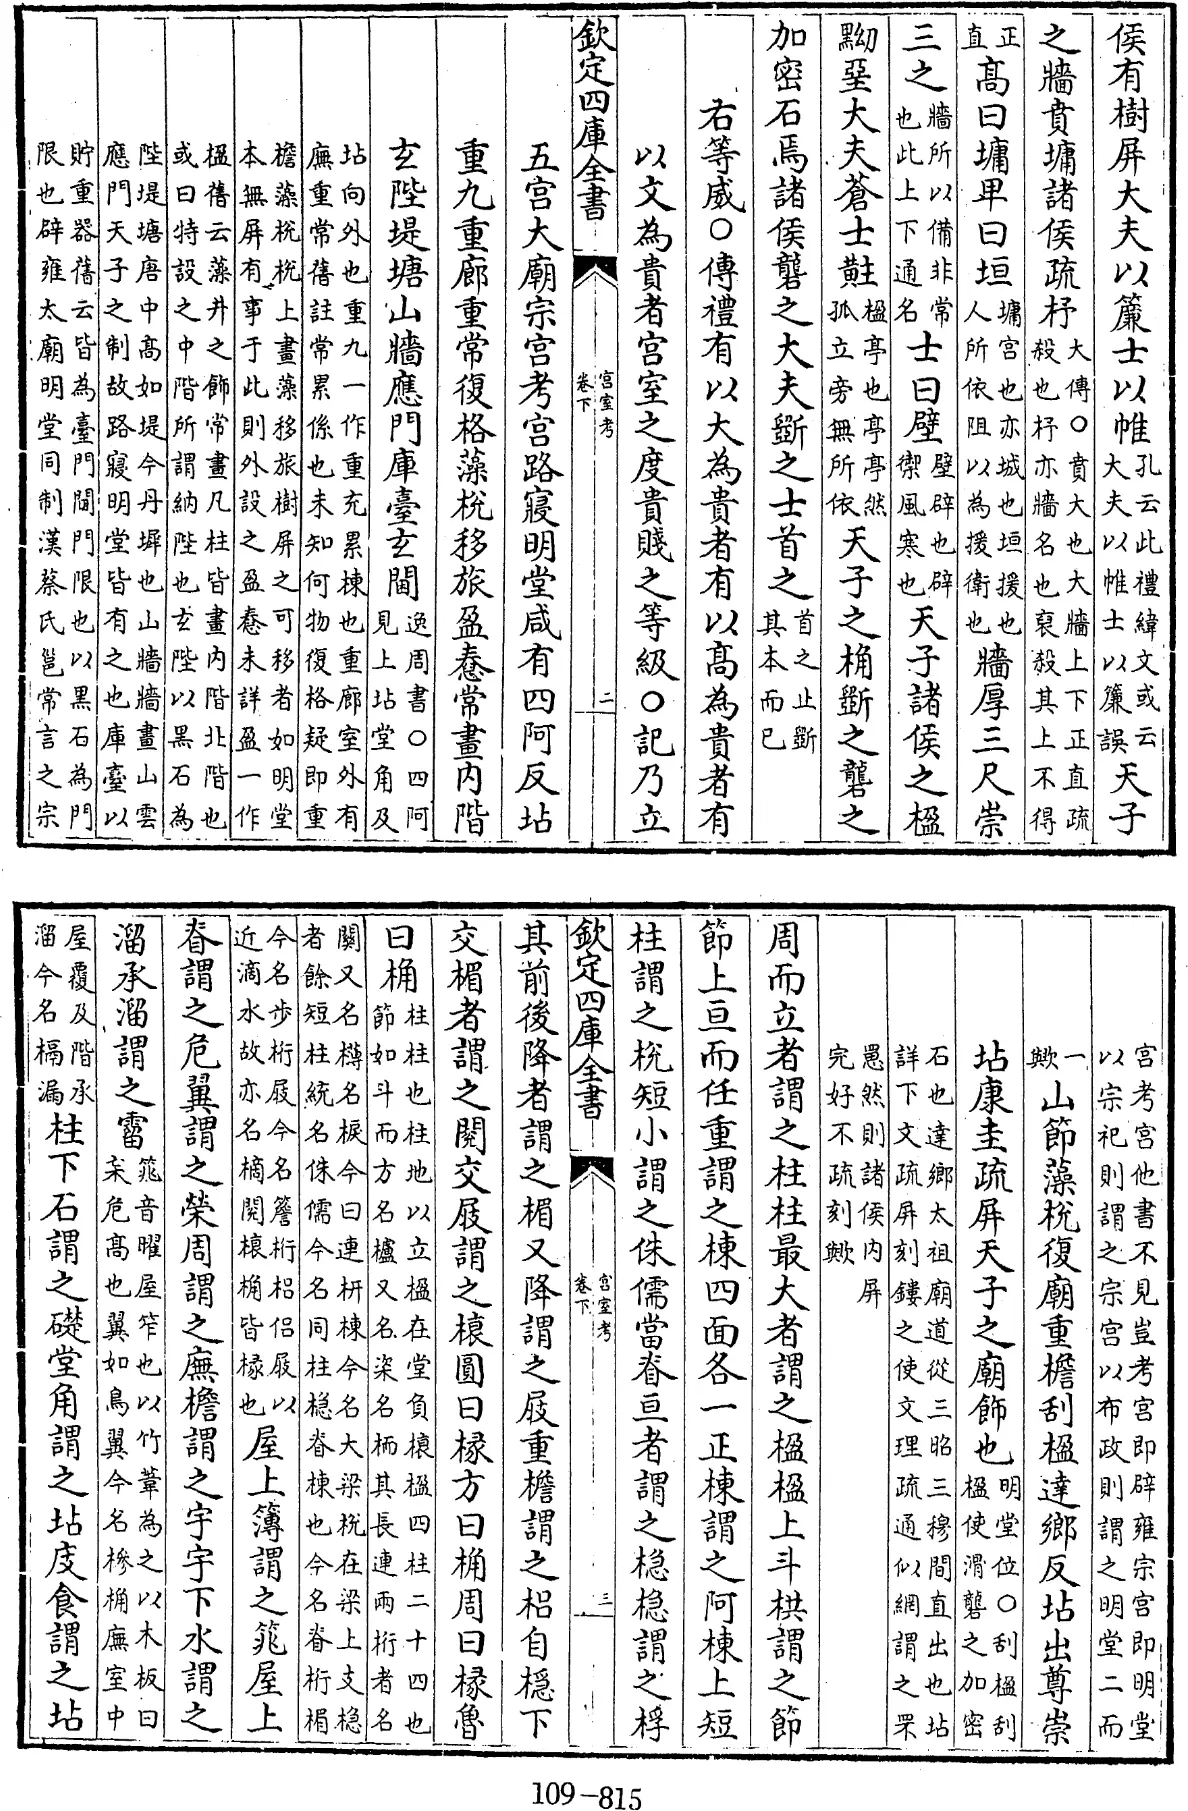 侯有樹屏大夫以簾士以帷孔云此禮緯文或云大夫以帷士以簾誤天子
之牆賁墉諸侯疏杼大傳○賁大也大牆上下正直疏殺也杼亦牆名也裒殺其上不得
正直高曰墉卑曰垣墉宫也亦城也垣援也人所依阻以為援衛也牆厚三尺崇
三之牆所以備非常也此上下通名士曰壁壁辟也辟禦風寒也天子諸侯之楹
黝堊大夫蒼士黈楹亭也亭亭然孤立旁無所依天子之桷斲之礱之
加密石焉諸侯礱之大夫斲之士首之首之止斲其本而已
右等威○傳禮有以大為貴者有以高為貴者有
以文為貴者宫室之度貴賤之等級○記乃立
欽定四庫全書 宫室考 卷下 二
五宫大廟宗宫考宫路寢明堂咸有四阿反坫
重九重廊重常復格藻梲移旅盈惷常畫内階
玄陛堤塘山牆應門庫臺玄閫逸周書○四阿見上坫堂角及
坫向外也重九一作重充累棟也重廊室外有
廡重常舊註常累係也未知何物復格疑即重
檐藻梲梲上畫藻移旅樹屏之可移者如明堂
本無屏有事于此則外設之盈惷未詳盈一作
楹舊云藻井之飾常畫凡柱皆畫内階北階也
或曰特設之中階所謂納陛也玄陛以黑石為
陛堤塘唐中高如堤今丹墀也山牆牆畫山雲
應門天子之制故路寢明堂皆有之也庫臺以
貯重器舊云皆為臺門閫門限也以黑石為門
限也辟雍太廟明堂同制漢蔡氏邕常言之宗
宫考宫他書不見豈考宫即辟雍宗宫即明堂
以宗祀則謂之宗宫以布政則謂之明堂二而
一歟山節藻梲復廟重檐刮楹達鄉反坫出尊崇
坫康圭疏屏天子之廟飾也明堂位○刮楹刮楹使滑礱之加密
石也達鄉太祖廟道從三昭三穆間直出也坫
詳下文疏屏刻鏤之使文理疏通似網謂之罘
罳然則諸侯内屏
完好不疏刻歟
周而立者謂之柱柱最大者謂之楹楹上斗栱謂之節
節上亘而任重謂之棟四面各一正棟謂之阿棟上短
柱謂之梲短小謂之侏儒當脊亘者謂之檼檼謂之桴
欽定四庫全書 宫室考 卷下 三
其前後降者謂之楣又降謂之㡿重檐謂之梠自檼下
交楣者謂之閱交㡿謂之榱圓曰椽方曰桷周曰椽魯
曰桷柱柱也柱地以立楹在堂負榱楹四柱二十四也節如斗而方名櫨又名楶名栭其長連兩桁者名
關又名欂名棙今曰連枅棟今名大梁梲在梁上支檼
者餘短柱統名侏儒今名同柱檼脊棟也今名脊桁楣
今名步桁㡿今名簷桁梠侶㡿以
近滴水故亦名樀閱榱桷皆椽也屋上簿謂之筄屋上
脊謂之危翼謂之榮周謂之廡檐謂之宇宇下水謂之
溜承溜謂之霤筄音曜屋笮也以竹葦為之以木板曰㭒危高也翼如鳥翼今名槮桷廡室中
屋覆及階承
溜今名槅漏柱下石謂之礎堂角謂之坫庋食謂之坫
109-815